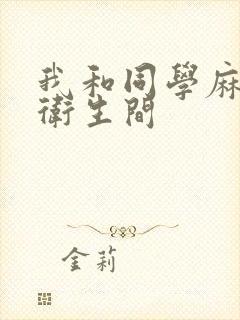 我和同學麻
衛生間
金莉